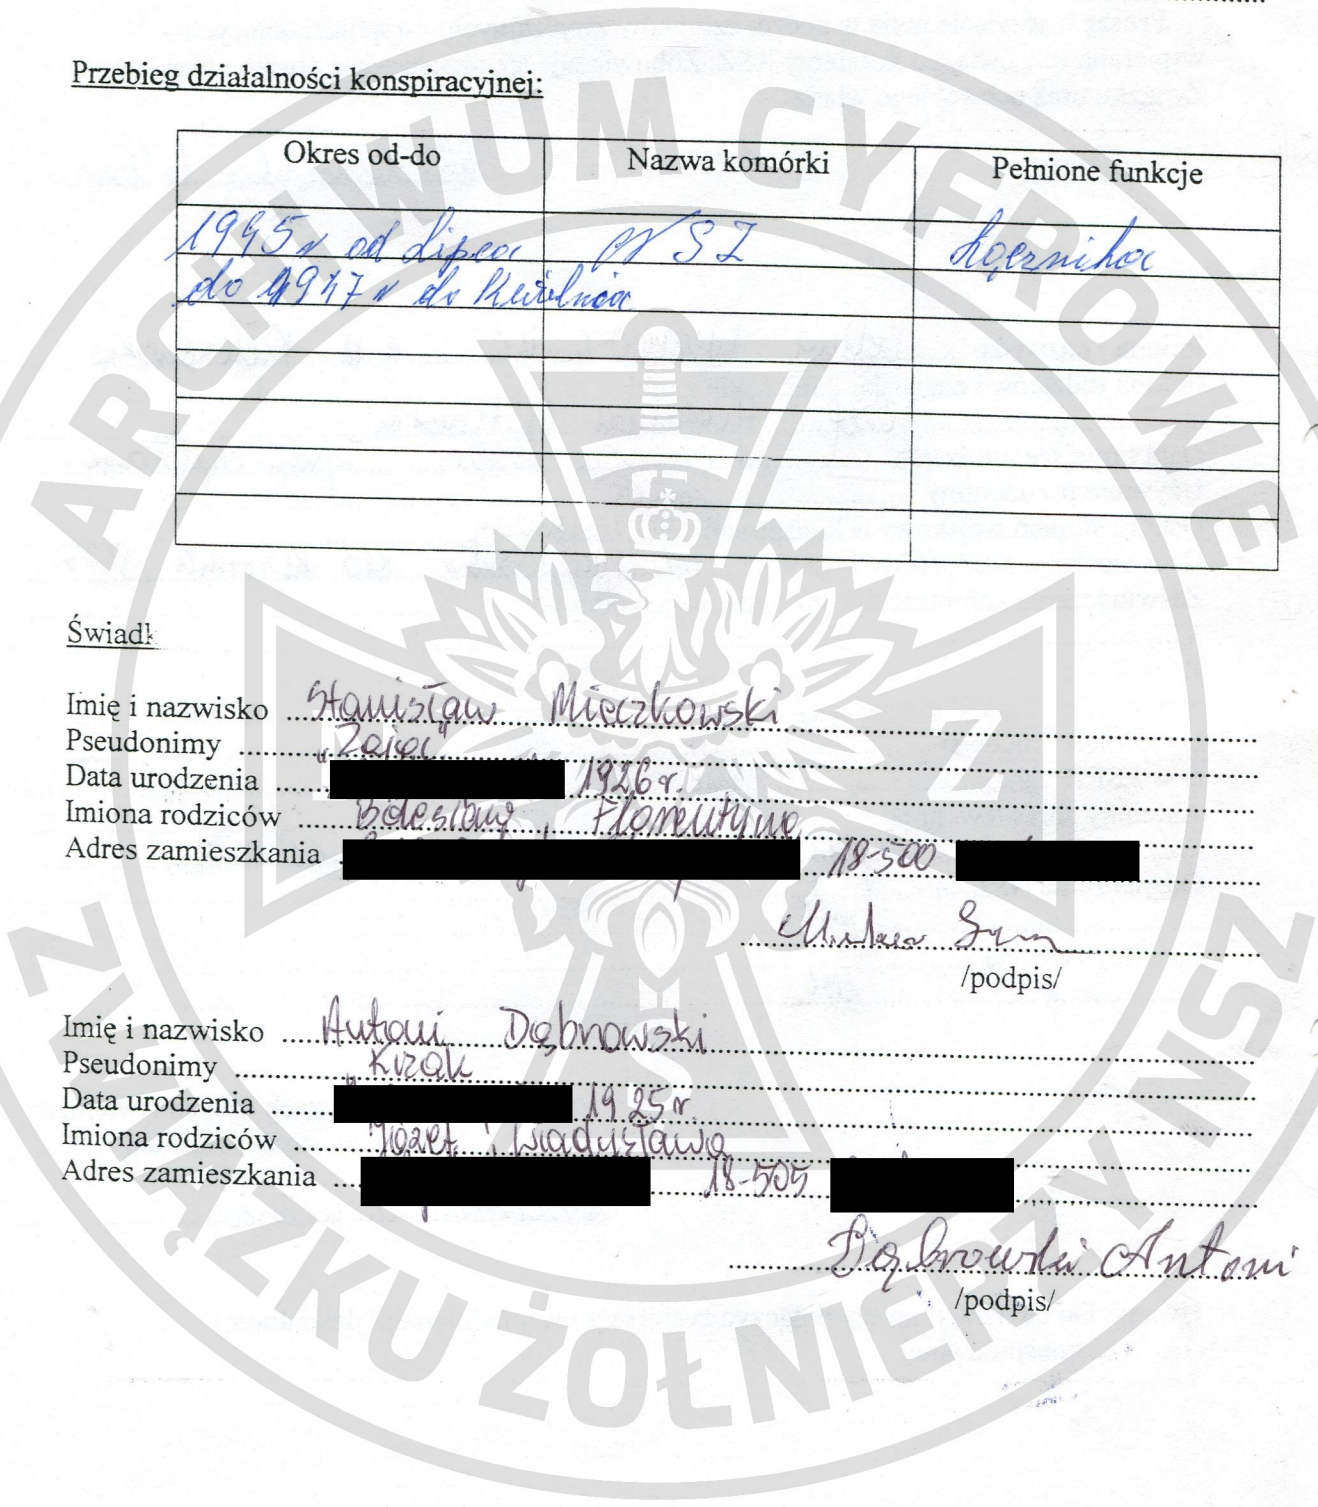 Przebieg działalności konspiracyjnej:
Okres od-do Nazwa komórki Pełnione funkcje
1945 r od Lipca NSZ Łącznika
do 1947 r do Kwietnia
Świadk
Imię i nazwisko Stanisław Mieczkowski
Pseudonimy „Zając"
Data urodzenia 1926 r.
Imiona rodziców Bolesław, Florentyna
Adres zamieszkania 18-500
/podpis/
Imię i nazwisko Antoni Dąbrowski
Pseudonimy „Krzak
Data urodzenia 1925 r.
Imiona rodziców Józef, Władysława
Adres zamieszkania 18-505
Dąbrowski Antoni
/podpis/
ARCHIWUM CYFROWE
ZWIĄZKU ŻOŁNIERZY NSZ
N Z
S